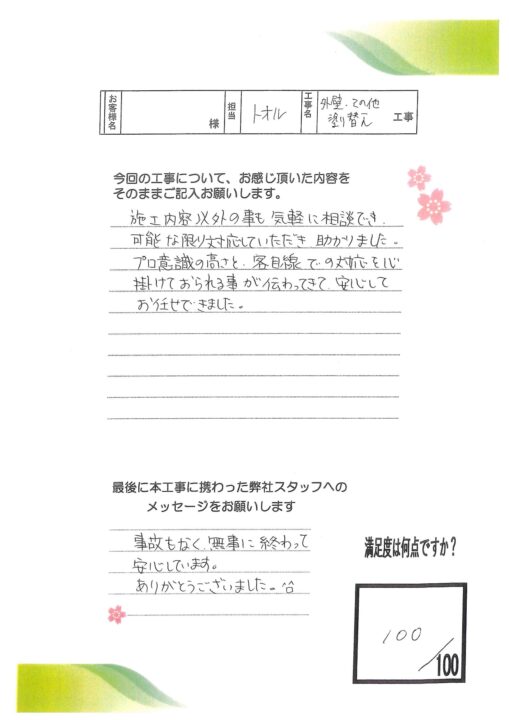 お客様名 様 担当 トオル 工事名 外壁・その他 塗り替え 工事
今回の工事について、お感じ頂いた内容を
そのままご記入お願いします。
施工内容以外の事も気軽に相談でき、
可能な限り対応していただき助かりました。
プロ意識の高さと、客目線での対応を心
掛けておられる事が伝わってきて、安心して
お任せできました。
最後に本工事に携わった弊社スタッフへの
メッセージをお願いします
事故もなく、無事に終わって
安心しています。
ありがとうございました。^^
満足度は何点ですか?
100/100